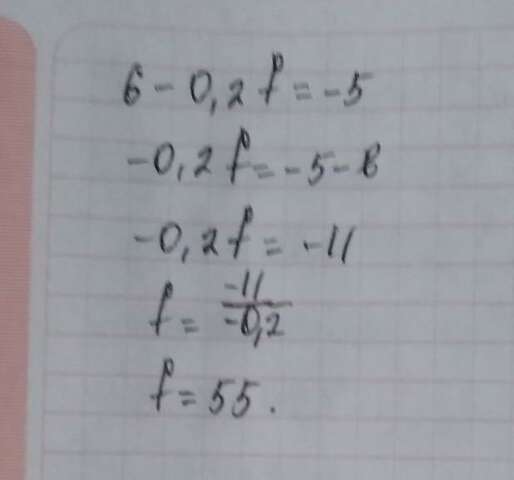 6 - 0,2 f = -5
-0,2 f = -5 - 6
-0,2 f = -11
f = -11 / -0,2
f = 55.